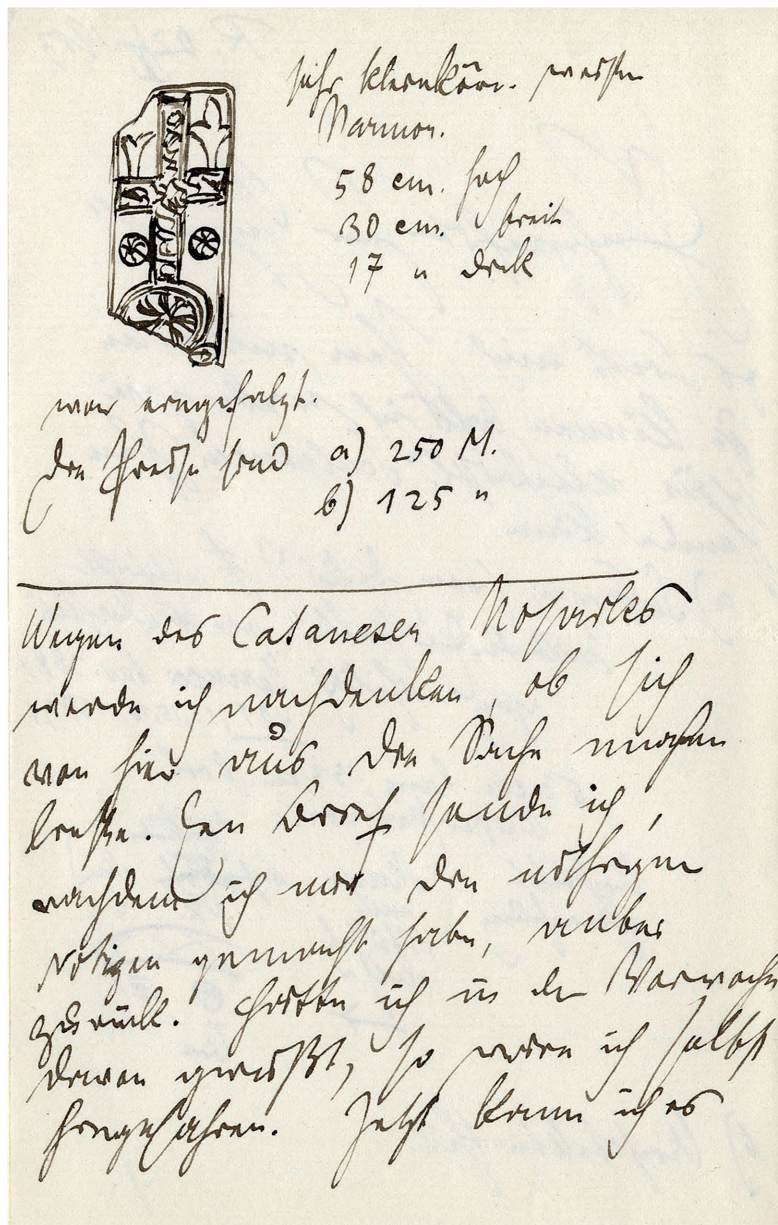 sehr kleinkörn. weisser
Marmor.
58 cm. hoch
30 cm. breit
17 " dick
war eingefalzt.
Die Preise sind a) 250 M.
b) 125 "
Wegen des Cataneser Mosaikes
werde ich nachdenken, ob sich
von hier aus die Sache machen
liesse. Den Brief sende ich,
nachdem ich mir die nöthigen
Notizen gemacht habe, anbei
zurück. Hätte ich in der Vorwoche
davon gewußt, so wäre ich selbst
hingefahren. Jetzt kann ich es